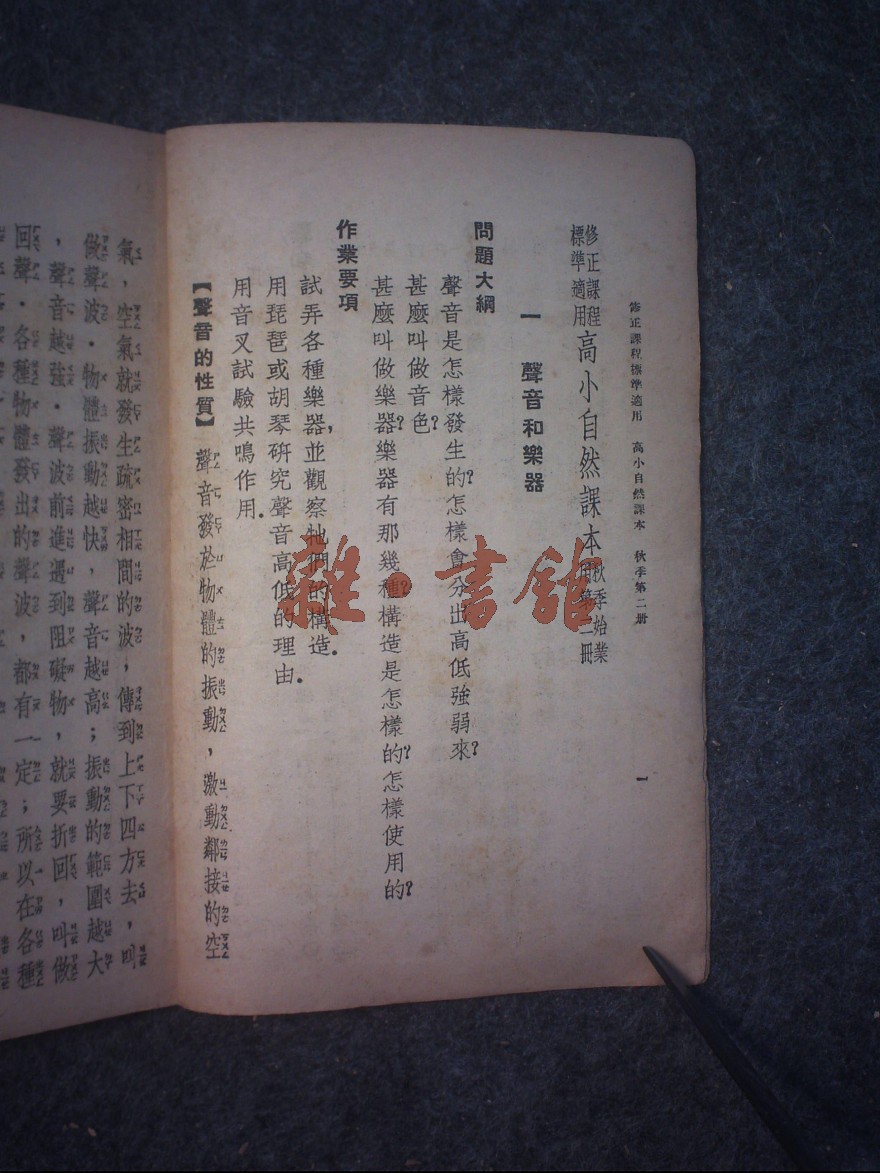 修正課程標準適用　高小自然課本　秋季第二册
一
修正課程標準適用高小自然課本秋季始業用第二冊
一　聲音和樂器
問題大綱
聲音是怎樣發生的？怎樣會分出高低強弱來？
甚麼叫做音色？
甚麼叫做樂器？樂器有那幾種？構造是怎樣的？怎樣使用的？
作業要項
試弄各種樂器，並觀察牠們的構造．
用琵琶或胡琴研究聲音高低的理由．
用音叉試驗共鳴作用．
【聲音的性質】聲音發於物體的振動，激動鄰接的空
氣，空氣就發生疏密相間的波，傳到上下四方去，叫
做聲波．物體振動越快，聲音越高；振動的範圍越大
，聲音越強．聲波前進遇到阻礙物，就要折回，叫做
回聲．各種物體發出的聲波，都有一定；所以在各種
雜·書館